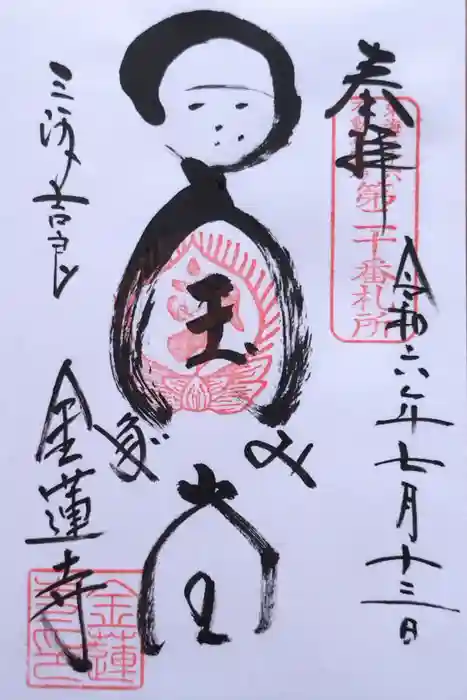 奉拝
第二十番札所
令和六年七月十三日
宝
みだ堂
三河吉良
金蓮寺
金蓮
寺印